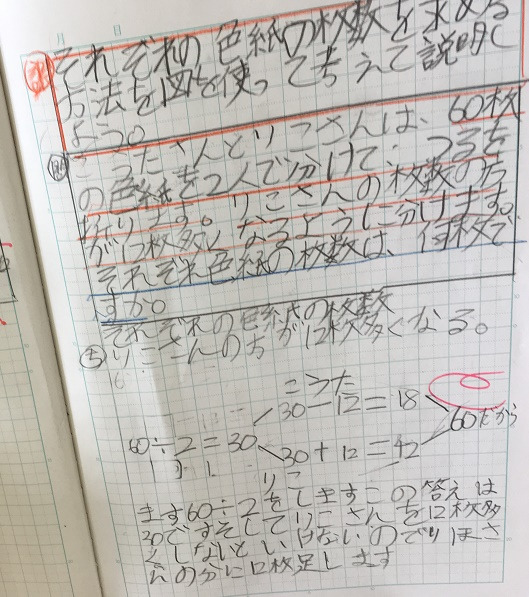 それぞれの色紙の枚数を求める
方法を図を使って考えて説明し
よう。
こうたさんとりこさんは、60枚
の色紙を2人で分けて、つるを
折ります。りこさんの枚数の方
が12枚多くなるように分けます。
それぞれ色紙の枚数は、何枚で
すか。
それぞれの色紙の枚数
りこさんの方が12枚多くなる。
こうた
30-12=18
60÷2=30
60だから
30+12=42
りこ
まず60÷2をしますこの答えは
30ですそしてりこさんを12枚多
くしないといけないのでりほさ
んの分に12枚足します